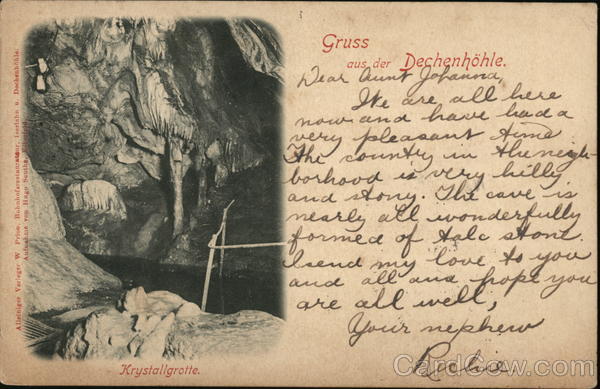 Gruss
aus der Dechenhöhle.
Dear Aunt Johanna,
We are all here
now and have had a
very pleasant time
The country in the neigh-
borhood is very hilly
and stony. The cave is
nearly all wonderfully
formed of talc stone.
I send my love to you
and all and hope you
are all well,
Your nephew
Krystallgrotte.
Alleiniger Verleger: W. Prinz, Bahnhofsrestaurateur, Iserlohn u. Dechenhöhle.
Aufnahme von Hugo
CardCow.com